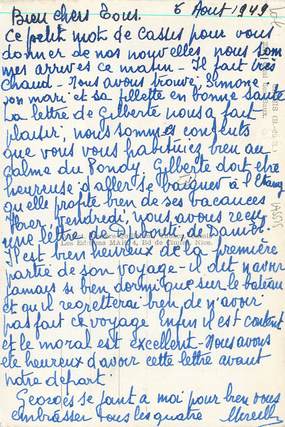 Bien chers Tous. 6 Aout 1949
Ce petit mot de Cassis pour vous
donner de nos nouvelles, nous som
mes arrives ce matin - Il fait très
chaud - Nous avons trouvé Simone
son mari et sa fillette en bonne santé
La lettre de Gilberte nous a fait
plaisir, nous sommes contents
que vous vous habituiez bien au
calme du Pondy, Gilberte doit être
heureuse d'aller se baigner à l'étang
qu'elle profite bien de ses vacances
Hier, Vendredi, nous avons reçu
une lettre de Djibouti, de Daniel.
Les Editions MAR, Nice.
Il est bien heureux de la première
partie de son voyage - il dit n'avoir
jamais si bien dormi que sur le bateau
et qu'il regretterai bien de n'avoir
pas fait ce voyage enfin il est content
et le moral est excellent - Nous avons
été heureux d'avoir cette lettre avant
notre départ.
Georges se joint a moi pour bien vous
embrasser tous les quatre